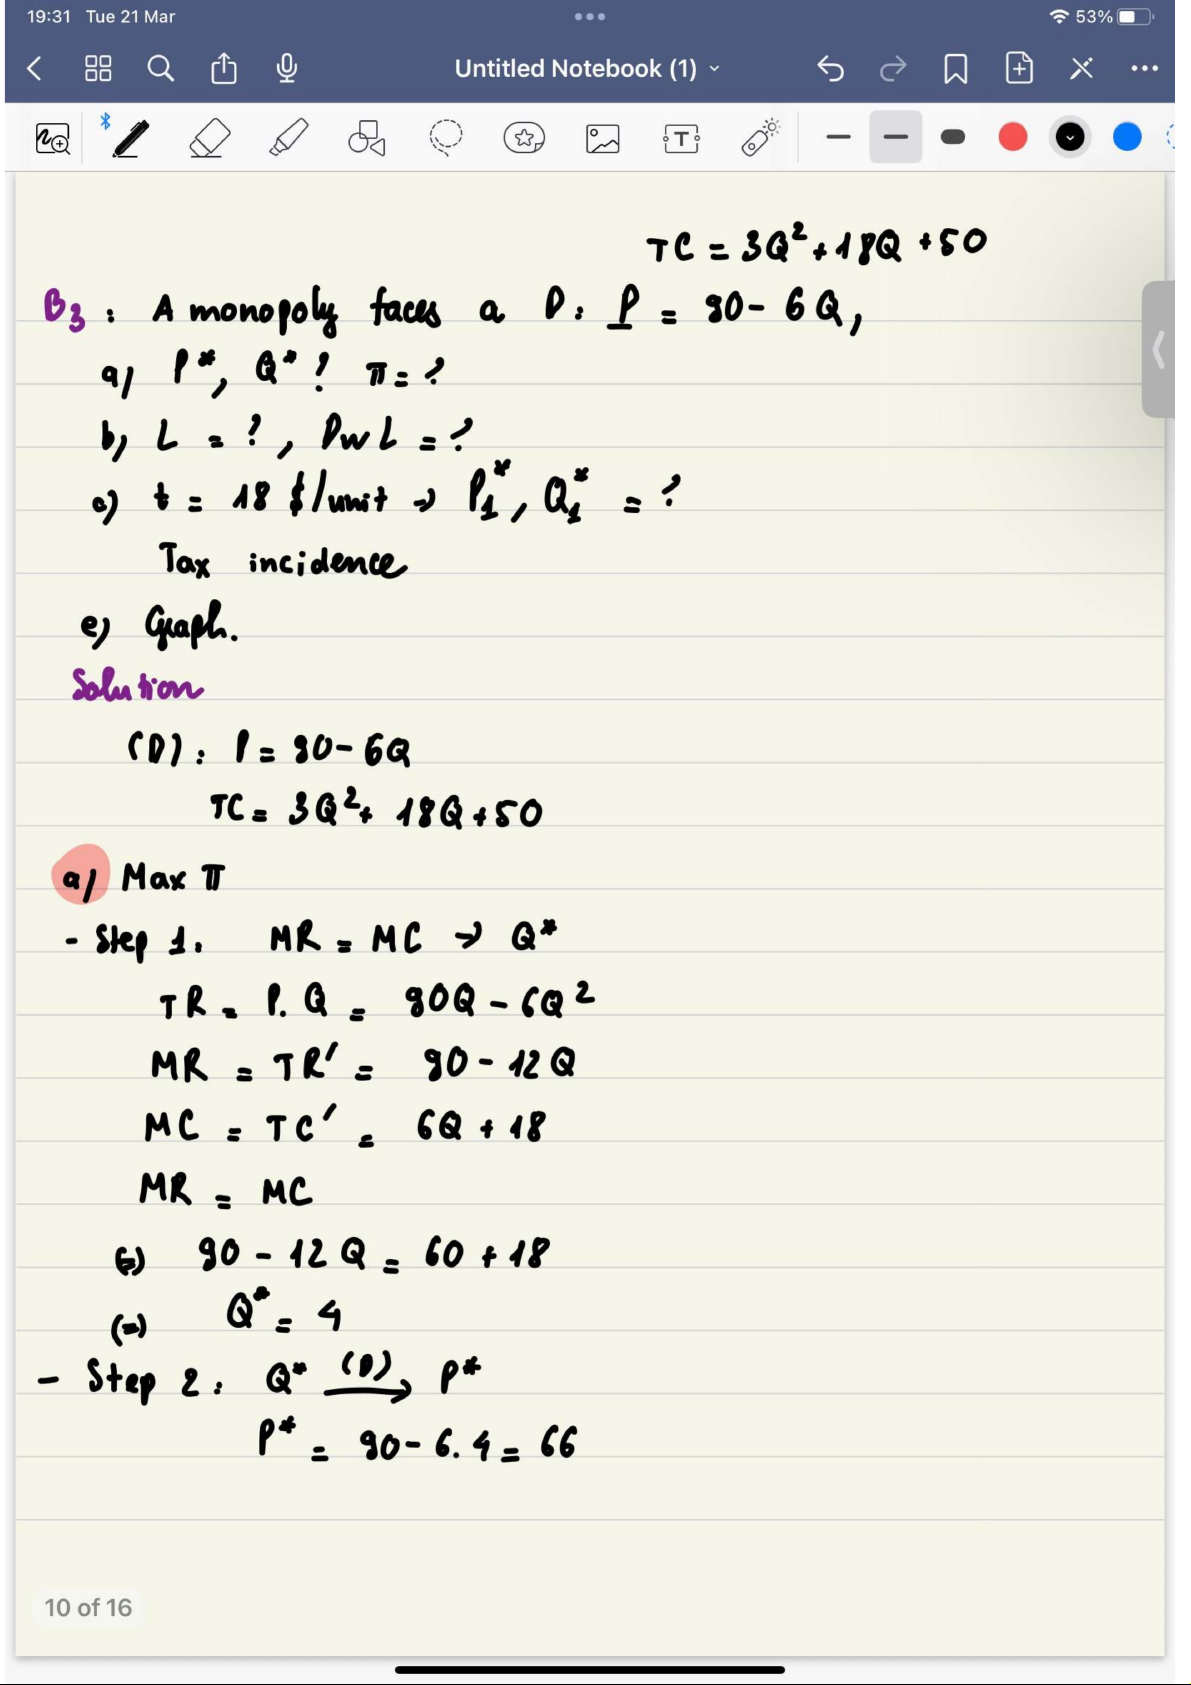 19:31 Tue 21 Mar
53%
Untitled Notebook (1)
TC = 3Q² + 18Q + 50
B3 : A monopoly faces a D: P = 90 - 6Q,
a) P*, Q* ? π = ?
b) L = ?, DWL = ?
c) t = 18 $/unit → P₁*, Q₁* = ?
Tax incidence
e) Graph.
Solution
(D) : P = 90 - 6Q
TC = 3Q² + 18Q + 50
a) Max π
- Step 1: MR = MC → Q*
TR = P. Q = 90Q - 6Q²
MR = TR' = 90 - 12Q
MC = TC' = 6Q + 18
MR = MC
(=) 90 - 12Q = 6Q + 18
(=) Q* = 4
- Step 2: Q* (D)→ P*
P* = 90 - 6.4 = 66
10 of 16